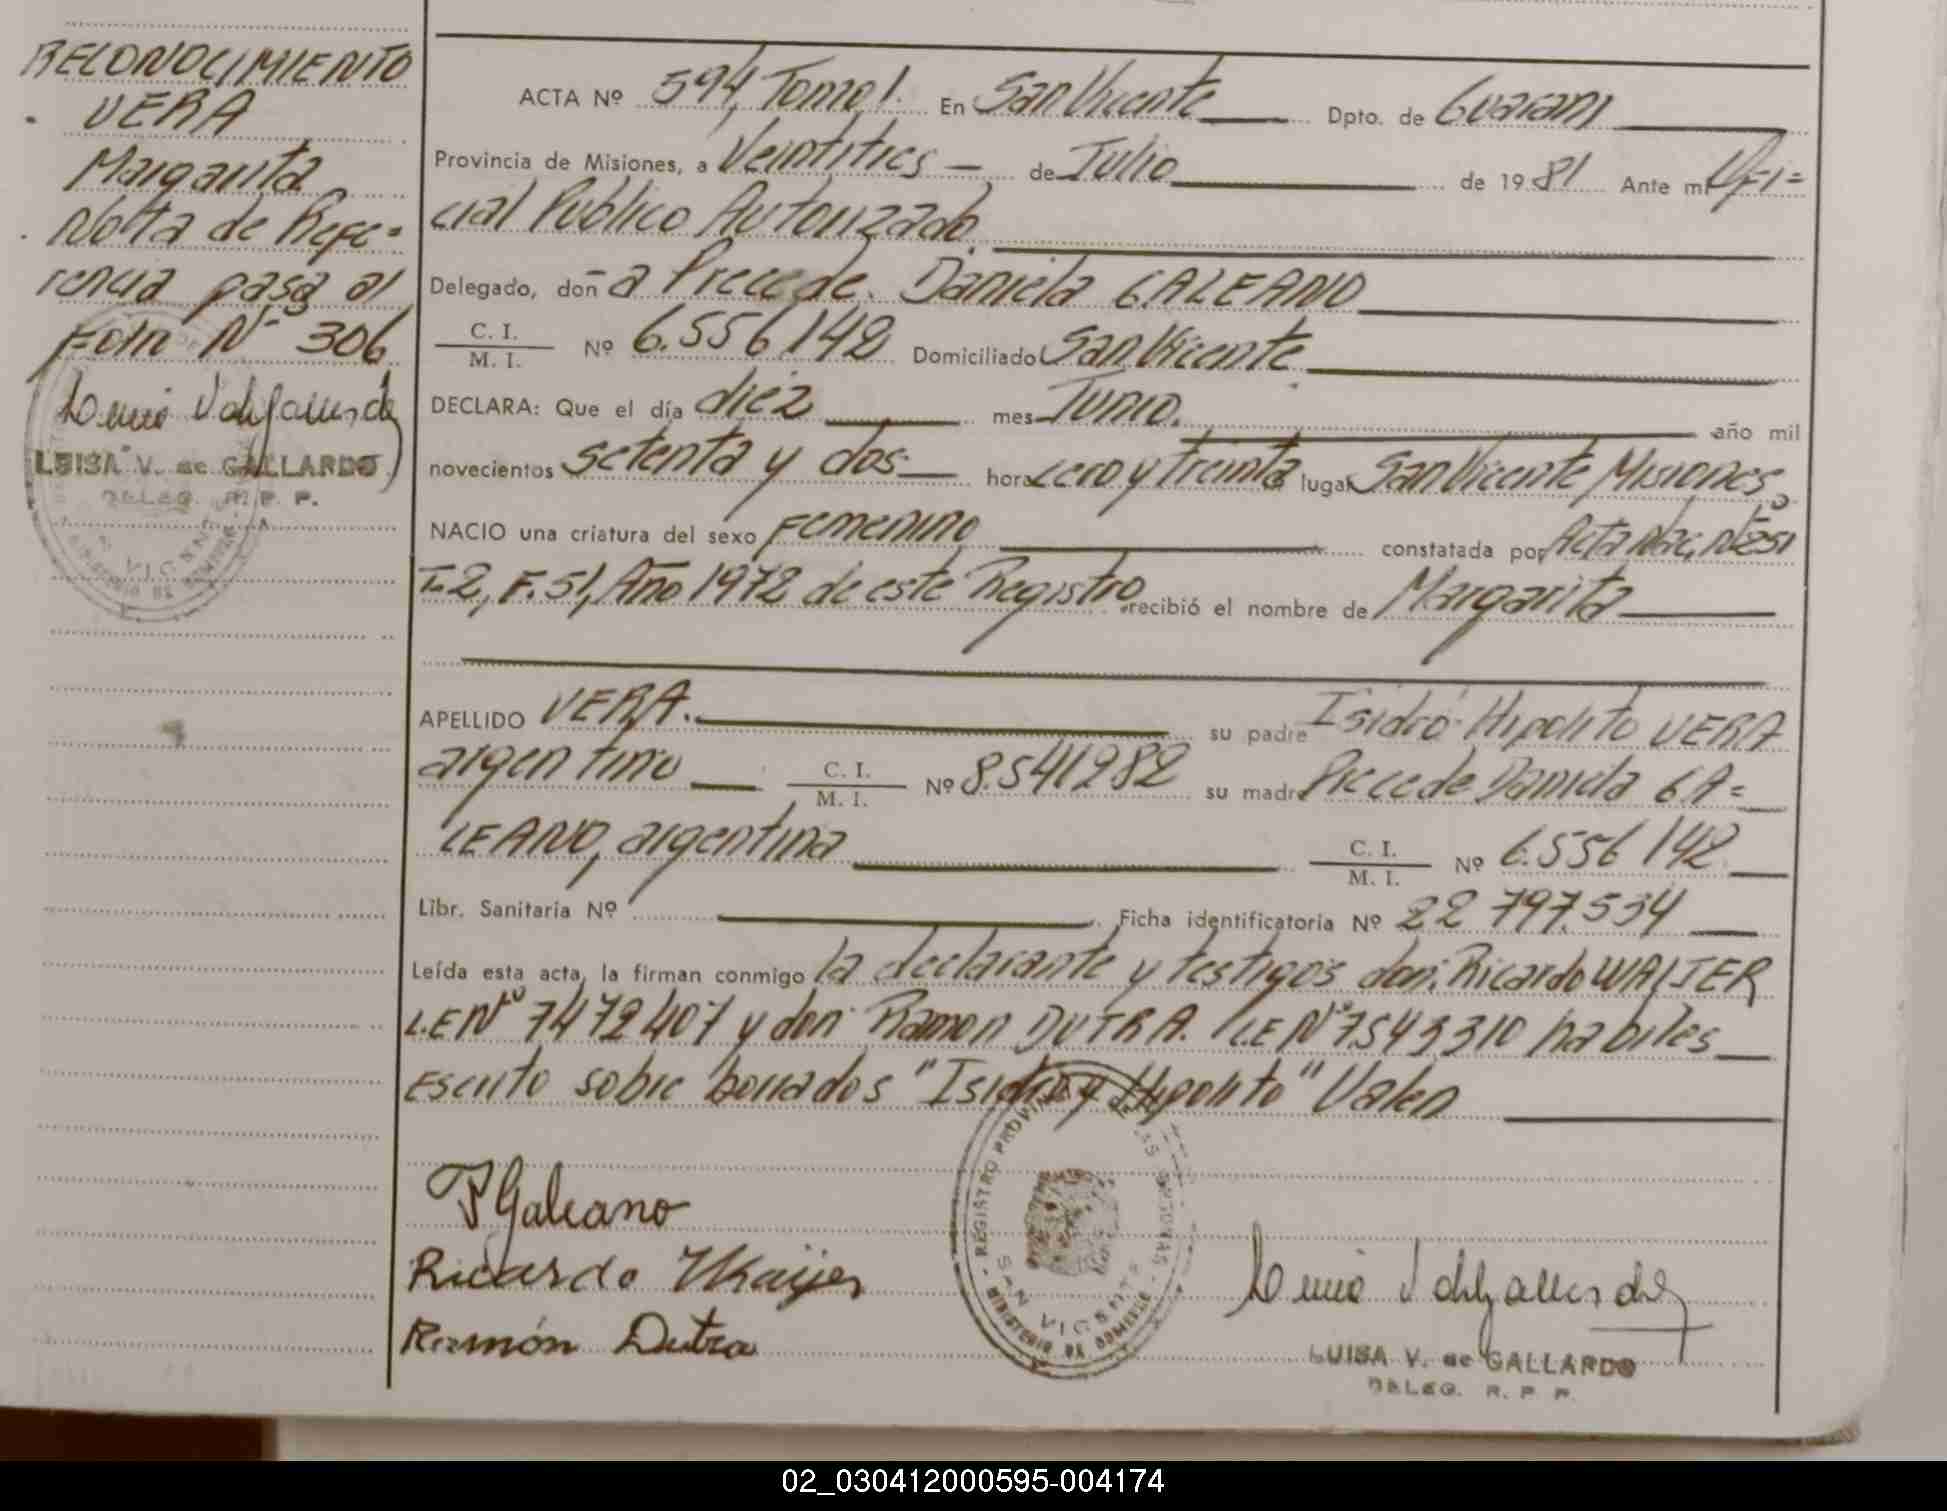 RECONOCIMIENTO
VERA
Margarita
Notta de Refe=
rencia pasa al
Folio Nº 306
LUISA V. de GALLARDO
DELEG. R. P. P.
ACTA Nº 594, Tomo 1. En San Vicente Dpto. de Guarani
Provincia de Misiones, a Veintitres de Julio de 1981 Ante mi Ofi=
cial Publico Autorizado.
Delegado, doña Precede. Daniela GALEANO
C. I. / M. I. Nº 6.556142 Domiciliado San Vicente
DECLARA: Que el día diez mes Junio. año mil
novecientos setenta y dos hora cero y treinta lugar San Vicente Misiones.
NACIO una criatura del sexo Femenino constatada por Acta Nac, Nº 251
T-2, F. 51, Año 1972 de este Registro recibió el nombre de Margarita
APELLIDO VERA. su padre Isidro Hipolito VERA
argentino C. I. / M. I. Nº 8.541282 su madre Precede Daniela GA=
LEANO, argentina C. I. / M. I. Nº 6.556142
Libr. Sanitaria Nº Ficha identificatoria Nº 22 797.534
Leída esta acta, la firman conmigo la declarante y testigos don: Ricardo WALJER
L.E Nº 7472407 y don: Ramon DUTRA. L.E Nº 7543310 habiles
Escrito sobre borrados "Isidro y Hipolito" Valen
REGISTRO PROVINCIAL DE LAS PERSONAS
SAN VICENTE
MINISTERIO DE GOBIERNO
P Galeano
Ricardo
Ramón Dutra
LUISA V. de GALLARDO
DELEG. R. P. P.
02_030412000595-004174